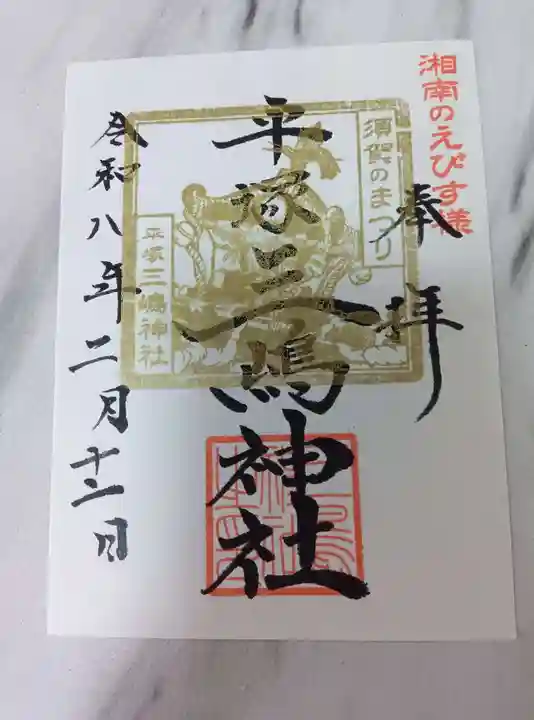 湘南のえびす様
奉拝
須賀のまつり
平塚三嶋神社
平塚三嶋神社
令和八年二月十一日